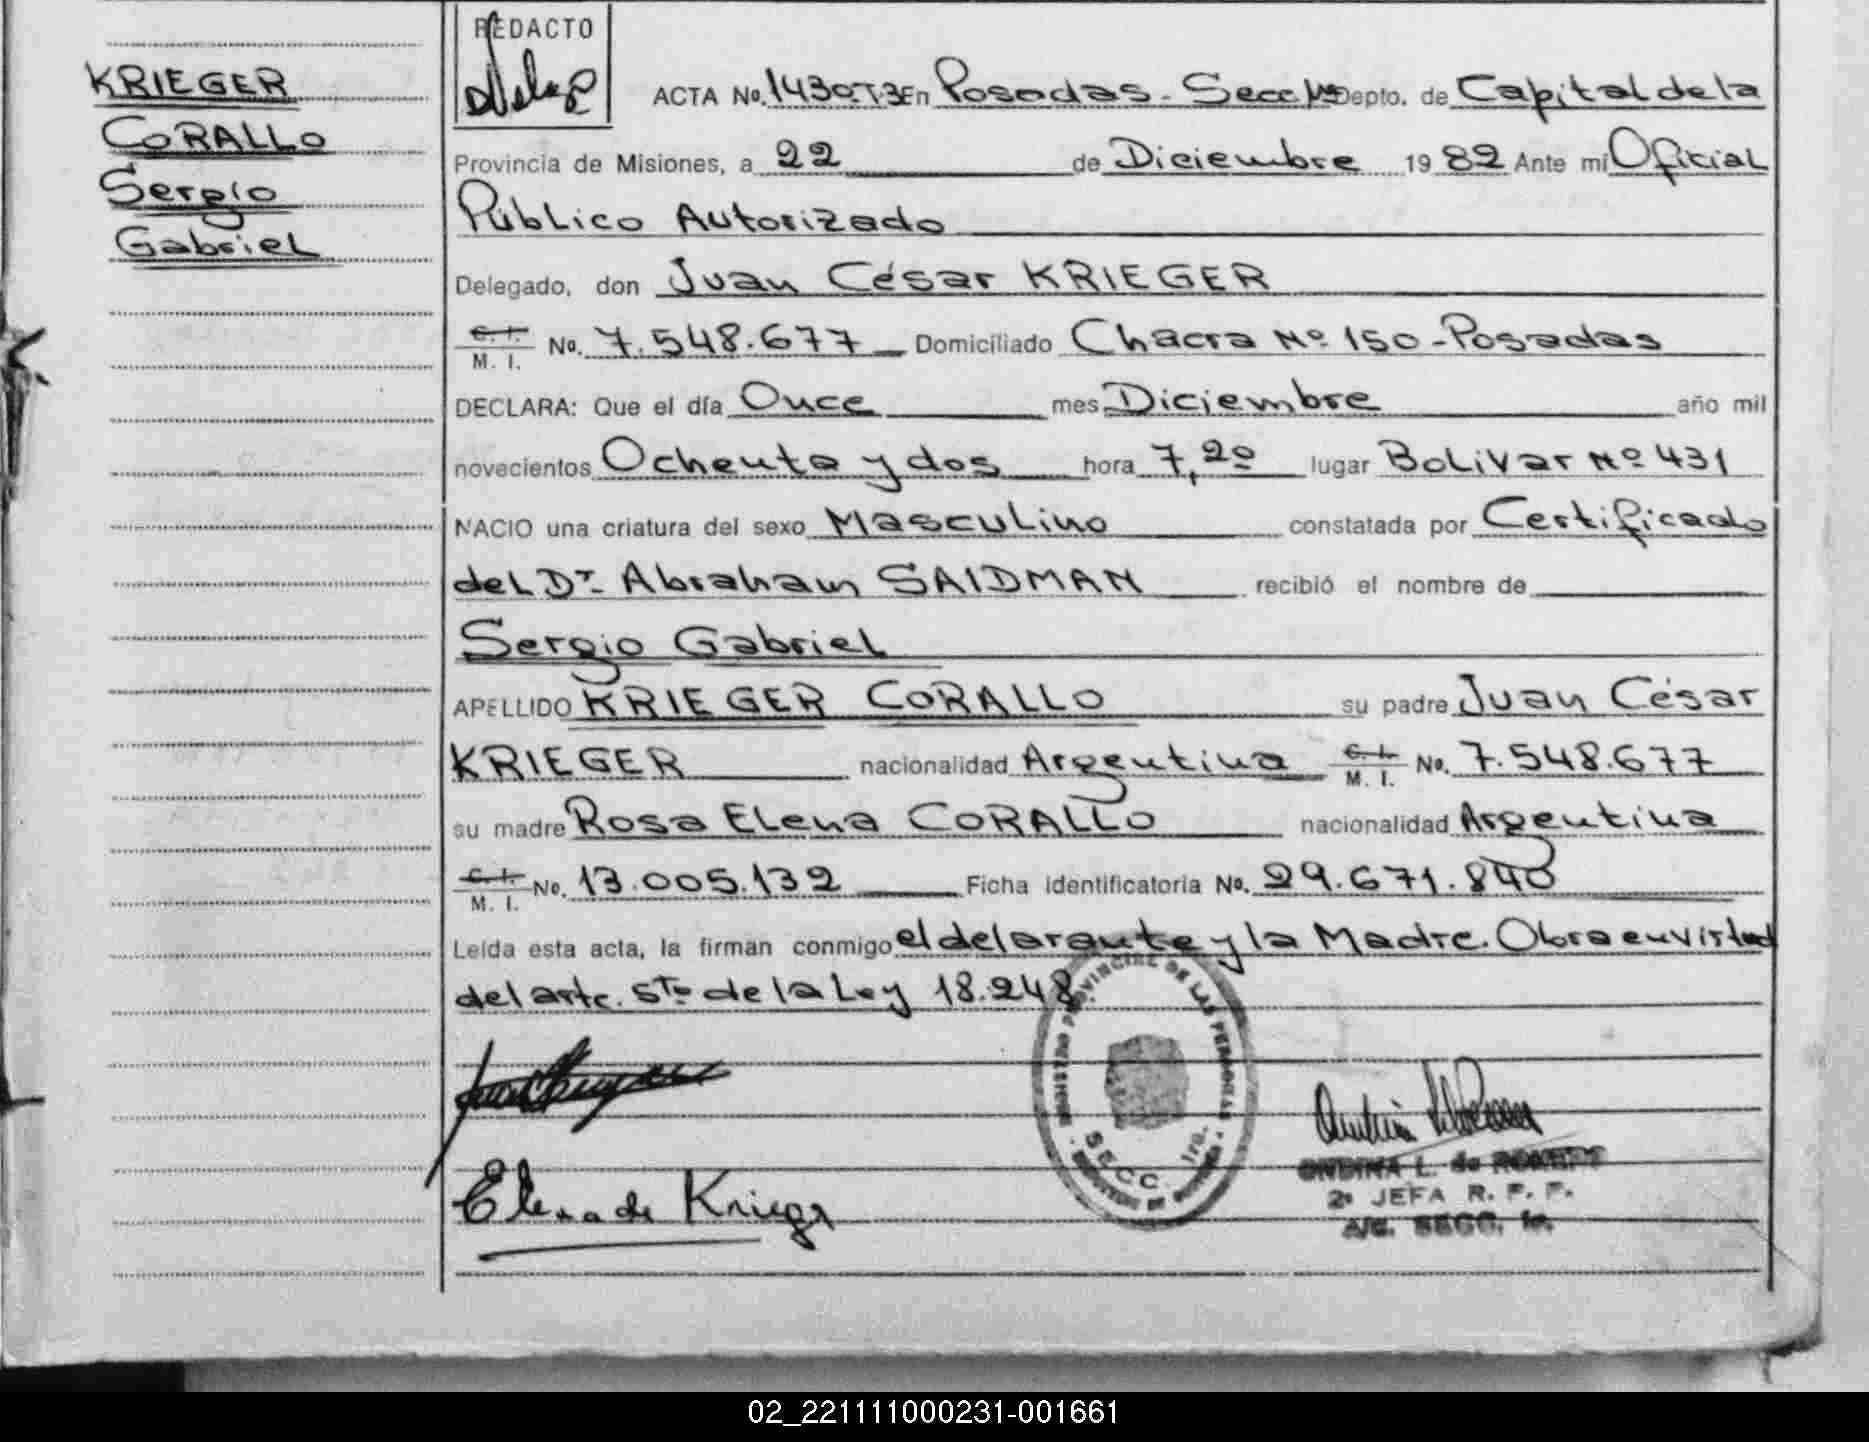 KRIEGER
CORALLO
Sergio
Gabriel
REDACTO
ACTA No. 1430-T3 En Posadas - Secc 1ª Depto. de Capital de la
Provincia de Misiones, a 22 de Diciembre 1982 Ante mí Oficial
Público Autorizado
Delegado, don Juan César KRIEGER
C. I. M. I. No. 7.548.677 Domiciliado Chacra Nº 150 - Posadas
DECLARA: Que el día Once mes Diciembre año mil
novecientos Ochenta y dos hora 7,20 lugar Bolivar Nº 431
NACIO una criatura del sexo Masculino constatada por Certificado
del Dr. Abraham SAIDMAN recibió el nombre de
Sergio Gabriel
APELLIDO KRIEGER CORALLO su padre Juan César
KRIEGER nacionalidad Argentina C. I. M. I. No. 7.548.677
su madre Rosa Elena CORALLO nacionalidad Argentina
C. I. M. I. No. 13.005.132 Ficha identificatoria No. 29.671.840
Leída esta acta, la firman conmigo el delarante y la Madre. Obra en virtud
del artc. 5to de la Ley 18.248.
REGISTRO PROVINCIAL DE LAS PERSONAS
SECC. 1ra.
Elena de Krieger
ONDINA L. de
2ª JEFA R. P. P.
A/C. SECC. 1a.
02_221111000231-001661